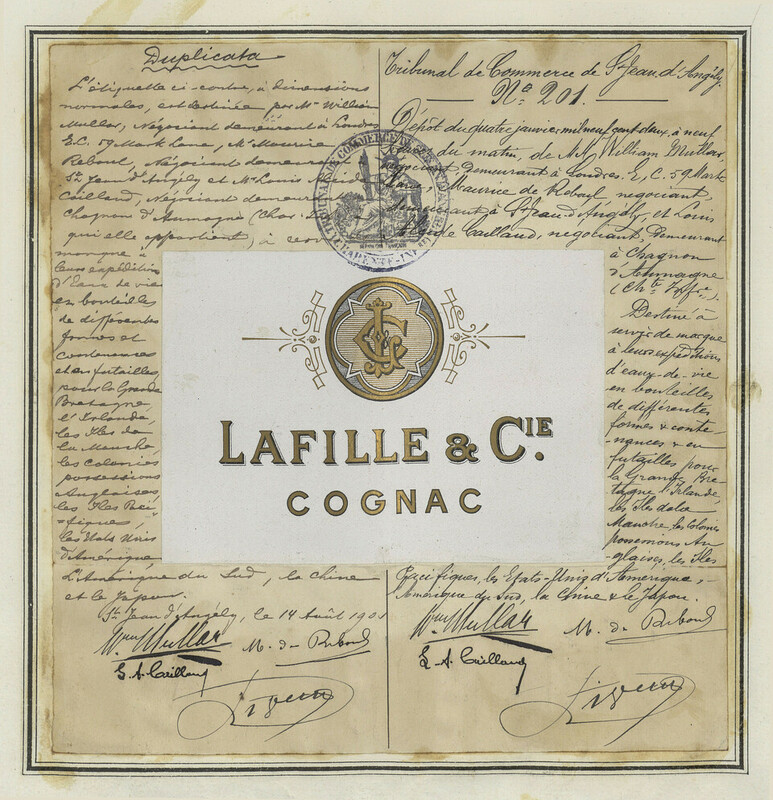 Duplicata
L'étiquette ci-contre, à dimensions
normales, est destinée par Mr William
Mullar, Négociant demeurant à Londres
E.C. 59 Mark Lane, Mr Maurice
Reboul, Négociant demeurant
St Jean d'Angély et Mr Louis
Caillaud, Négociant demeurant
Chagnon d'Aumagne (Char.
qui elle appartient) à
marque à
leurs expéditions
d'Eaux de vie
en bouteilles
de différentes
formes et
contenances
et en futailles,
pour la Grande
Bretagne
l'Irlande,
les Iles de
la Manche,
les colonies
possessions
Anglaises,
les Iles Paci=
=fiques,
les Etats Unis
d'Amérique
L'Amérique du Sud, la Chine
et le Japon.
St Jean d'Angély, le 14 Août 1901
Wm Mullar
M. de Reboul
L. A. Caillaud
Tribunal de Commerce de St Jean d'Angély.
No 201.
Dépôt du quatre janvier mil neuf cent deux, à neuf
heures du matin, de MM. William Mullar,
négociant, demeurant à Londres, E, C, 59 Mark
Lane, Maurice de Reboul, négociant,
demeurant à St Jean d'Angély, et Louis
Caillaud, négociant, demeurant
à Chagnon
d'Aumagne
(Chte Infre).
Destiné à
servir de marque
à leurs expéditions
d'eaux-de-vie
en bouteilles
de différentes
formes & conte
nances & en
futailles pour
la Grande Bre
tagne, l'Irlande,
les Iles de la
Manche, les Colonies
possessions An
glaises, les Iles
Pacifiques, les Etats-Unis d'Amérique,
Amérique du Sud, la Chine & le Japon.
Wm Mullar
M. de Reboul
L. A. Caillaud
LAFILLE & CIE.
COGNAC